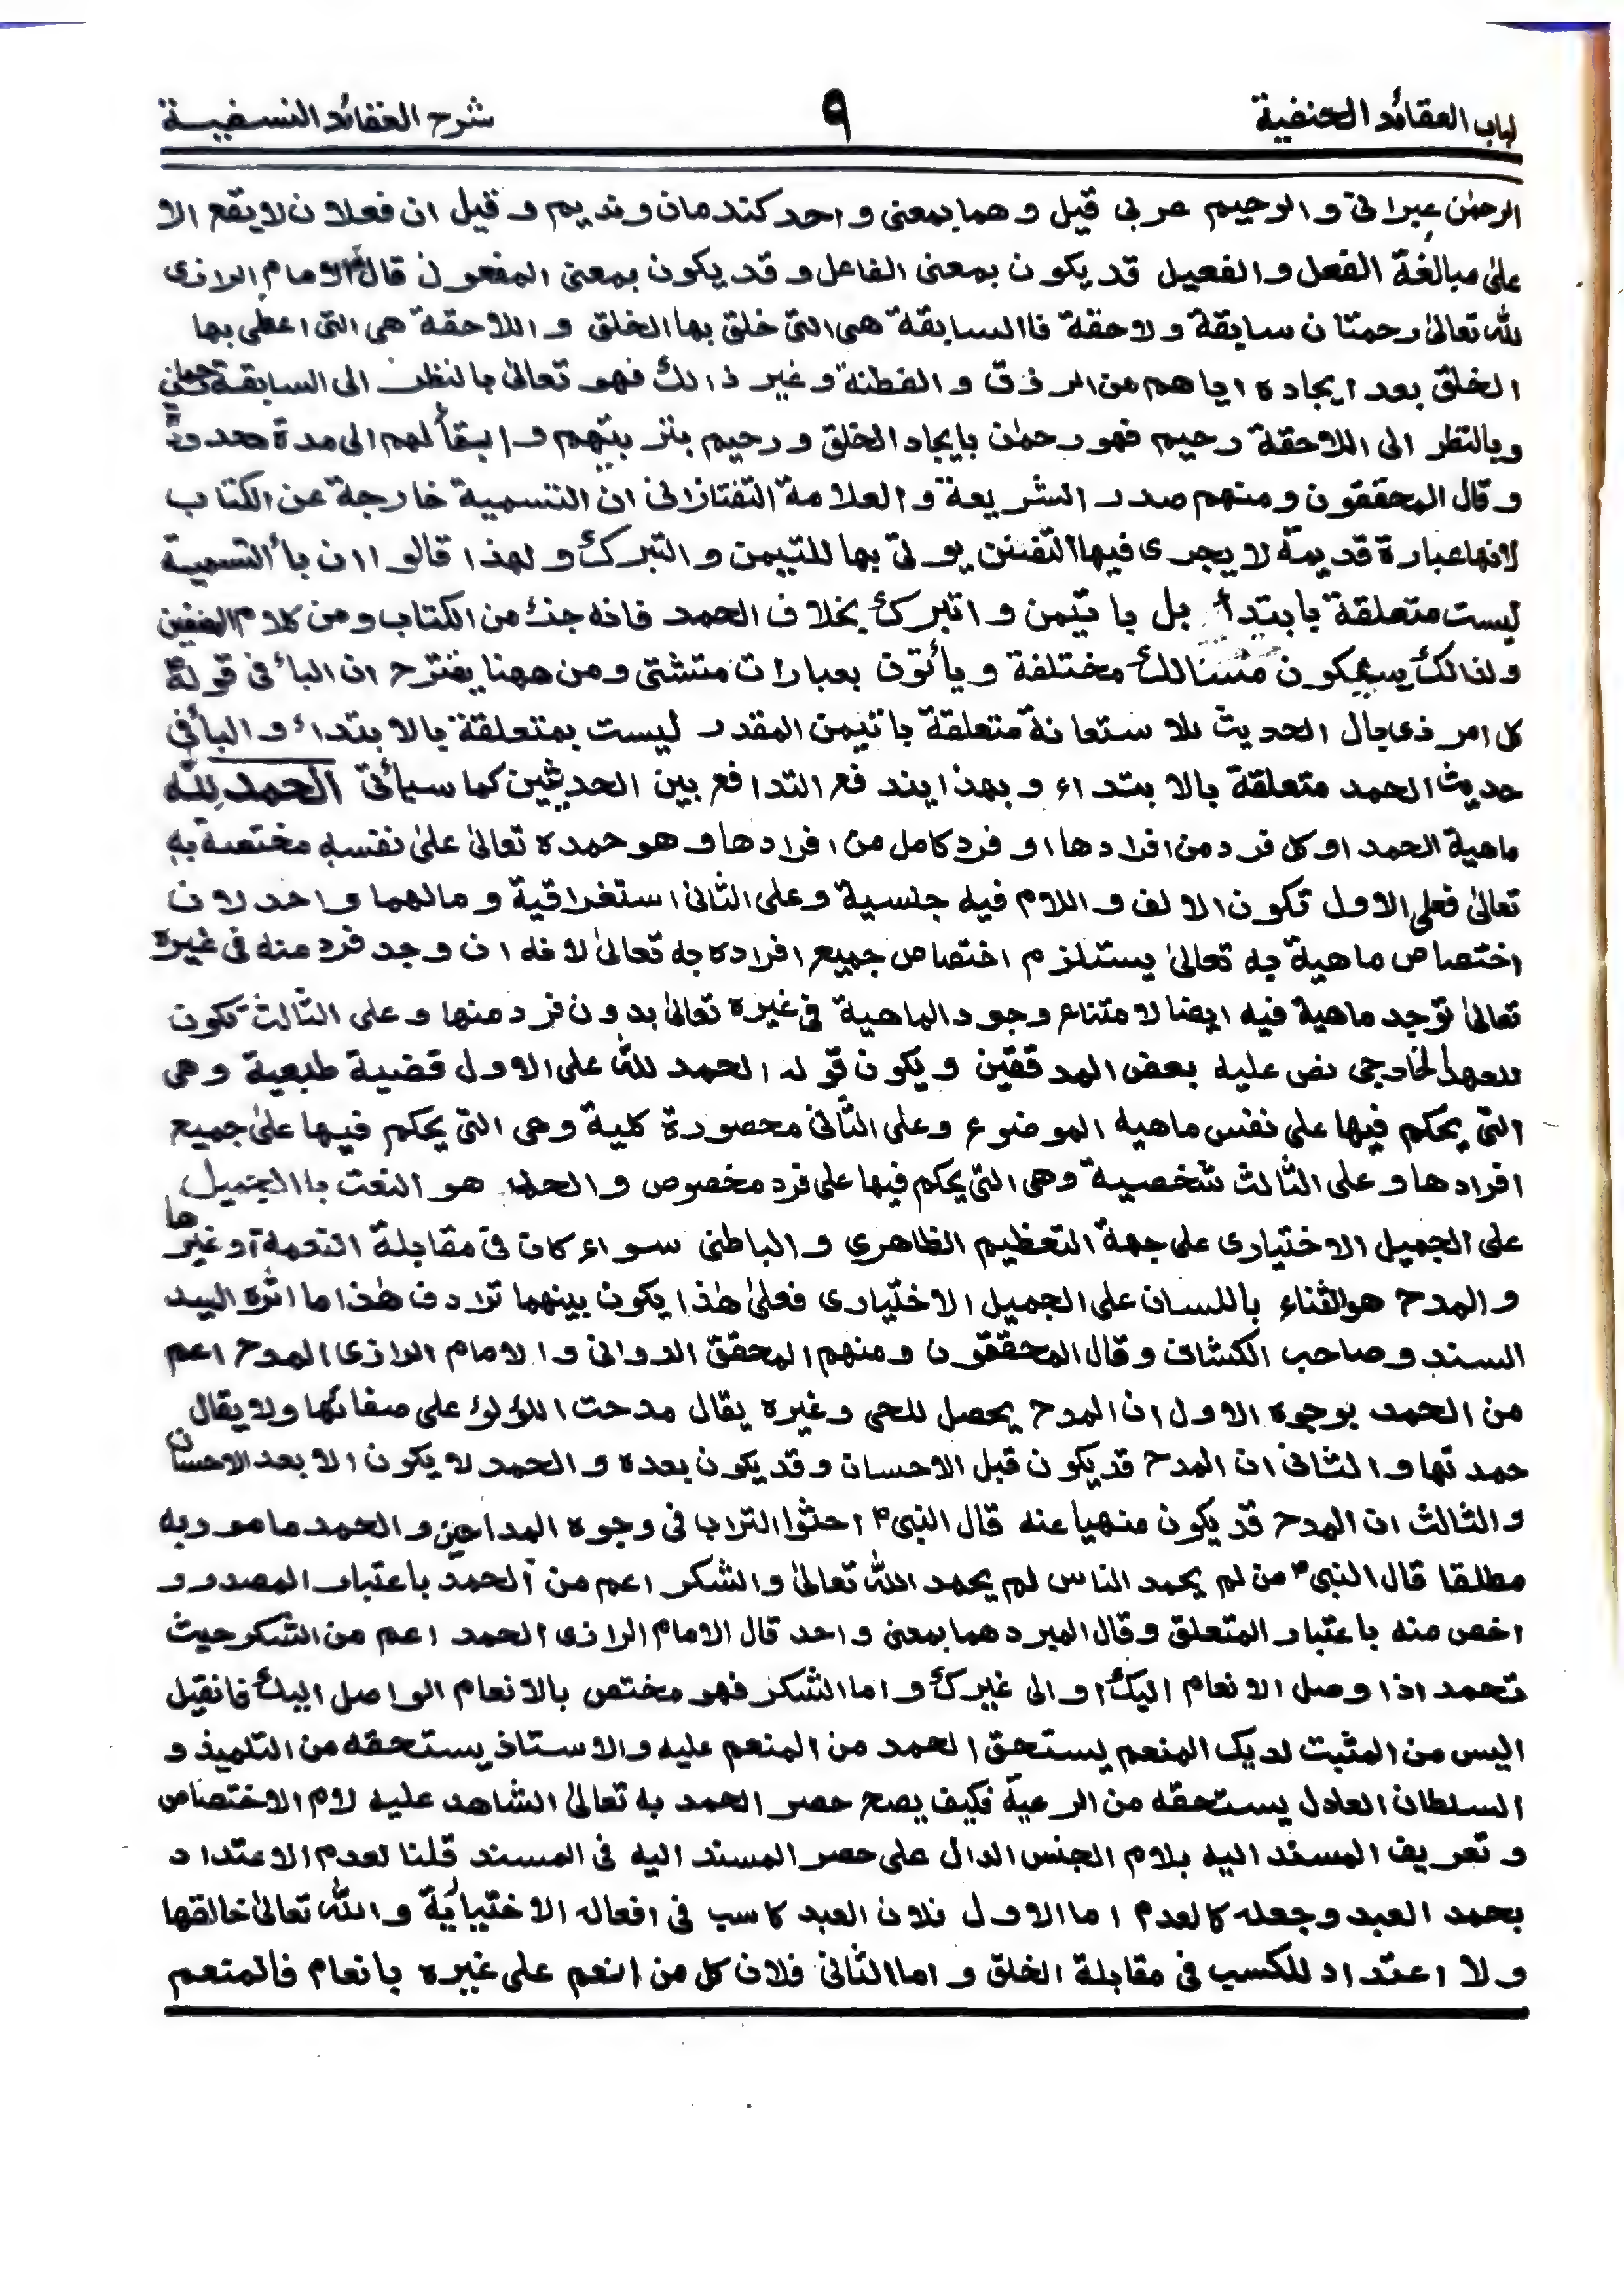 لباب العقائد الحنفية ٩ شرح العقائد النسفية
الرحمٰن عبرانى و الرحيم عربى قيل و هما بمعنى واحد كندمان ونديم و قيل ان فعلان لا يقع الا
علىٰ مبالغة الفعل و الفعيل قد يكون بمعنى الفاعل و قد يكون بمعنى المفعول قال الامام الرازى
لله تعالىٰ رحمتان سابقة ولاحقة فاالسابقة هى التى خلق بها الخلق و اللاحقة هى التى اعطى بها
الخلق بعد ايجاده اياهم من الرزق و الفطنة و غير ذالك فهو تعالىٰ بالنظر الى السابقة رحمٰن
وبالنظر الى اللاحقة رحيم فهو رحمٰن بايجاد الخلق و رحيم بتربيتهم و ابقأ لهم الى مدة
وقال المحققون ومنهم صدر الشريعة و العلامة التفتازانى ان التسمية خارجة عن الكتاب
لانها عبارة قديمة لا يجرى فيها التفنن يولى بها للتيمن و التبرك و لهذا قالوا ان بأ التسمية
ليست متعلقة با بتدأ بل با تيمن و اتبرك بخلاف الحمد فانه جزء من الكتاب ومن كلام المصنفين
ولذالك يسلكون مسالك مختلفة و يأتون بعبارات متشتى ومن ههنا يفترح ان البأ فى قوله
كل امر ذى بال الحديث للاستعانة متعلقة با تيمن المقدر ليست بمتعلقة بالابتداء و البأ فى
حديث الحمد متعلقة بالا بتداء و بهذا يندفع التدافع بين الحديثين كما سيأتى الحمد لله
ماهية الحمد او كل فرد من افرادها او فرد كامل من افرادها و هو حمده تعالىٰ علىٰ نفسه مختصة به
تعالىٰ فعلى الاول تكون الالف و اللام فيه جنسية وعلى الثانى استغراقية و مالهما واحد لان
اختصاص ماهية به تعالىٰ يستلزم اختصاص جميع افراده به تعالىٰ لانه ان وجد فرد منه فى غيره
تعالىٰ توجد ماهية فيه ايضا لامتناع وجود الماهية فى غيره تعالىٰ بدون فرد منها و على الثالث تكون
للعهد الخارجى نص عليه بعض المدققين و يكون قوله الحمد لله على الاول قضية طبعية و هى
التى يحكم فيها على نفس ماهيه الموضوع وعلى الثانى محصورة كلية وهى التى يحكم فيها علىٰ جميع
افرادها و على الثالث شخصية وهى التى يحكم فيها على فرد مخصوص و الحمد هو النعت بالجميل
على الجميل الاختيارى على جهة التعظيم الظاهرى و الباطنى سواء كان فى مقابلة النعمة او غيرها
و المدح هو الثناء باللسان على الجميل الاختيارى فعلىٰ هٰذا يكون بينهما ترادف هٰذا ما اثره السيد
السند و صاحب الكشاف و قال المحققون ومنهم المحقق الدوانى و الامام الرازى المدح اعم
من الحمد بوجوه الاول ان المدح يحصل للحى و غيره يقال مدحت اللؤلؤ على صفائها ولا يقال
حمدتها و الثانى ان المدح قد يكون قبل الاحسان و قد يكون بعده و الحمد لا يكون الا بعد الاحسان
و الثالث ان المدح قد يكون منهيا عنه قال النبى ؐ احثوا التراب فى وجوه المداحين و الحمد مامور به
مطلقا قال النبى ؐ من لم يحمد الناس لم يحمد الله تعالىٰ و الشكر اعم من الحمد باعتبار المصدر و
اخص منه باعتبار المتعلق و قال المبرد هما بمعنى واحد قال الامام الرازى الحمد اعم من الشكر حيث
تحمد اذا وصل الانعام اليك او الى غيرك و اما الشكر فهو مختص بالانعام الواصل اليك فانقيل
اليس من المثبت لديك المنعم يستحق الحمد من المنعم عليه و الاستاذ يستحقه من التلميذ و
السلطان العادل يستحقه من الرعية فكيف يصح حصر الحمد به تعالىٰ الشاهد عليه لام الاختصاص
و تعريف المسند اليه بلام الجنس الدال على حصر المسند اليه فى المسند قلنا لعدم الاعتداد
بحمد العبد و جعله كالعدم اما الاول فلان العبد كاسب فى افعاله الاختيارية و الله تعالىٰ خالقها
و لا اعتداد للكسب فى مقابلة الخلق و اما الثانى فلان كل من انعم على غيره بانعام فالمنعم